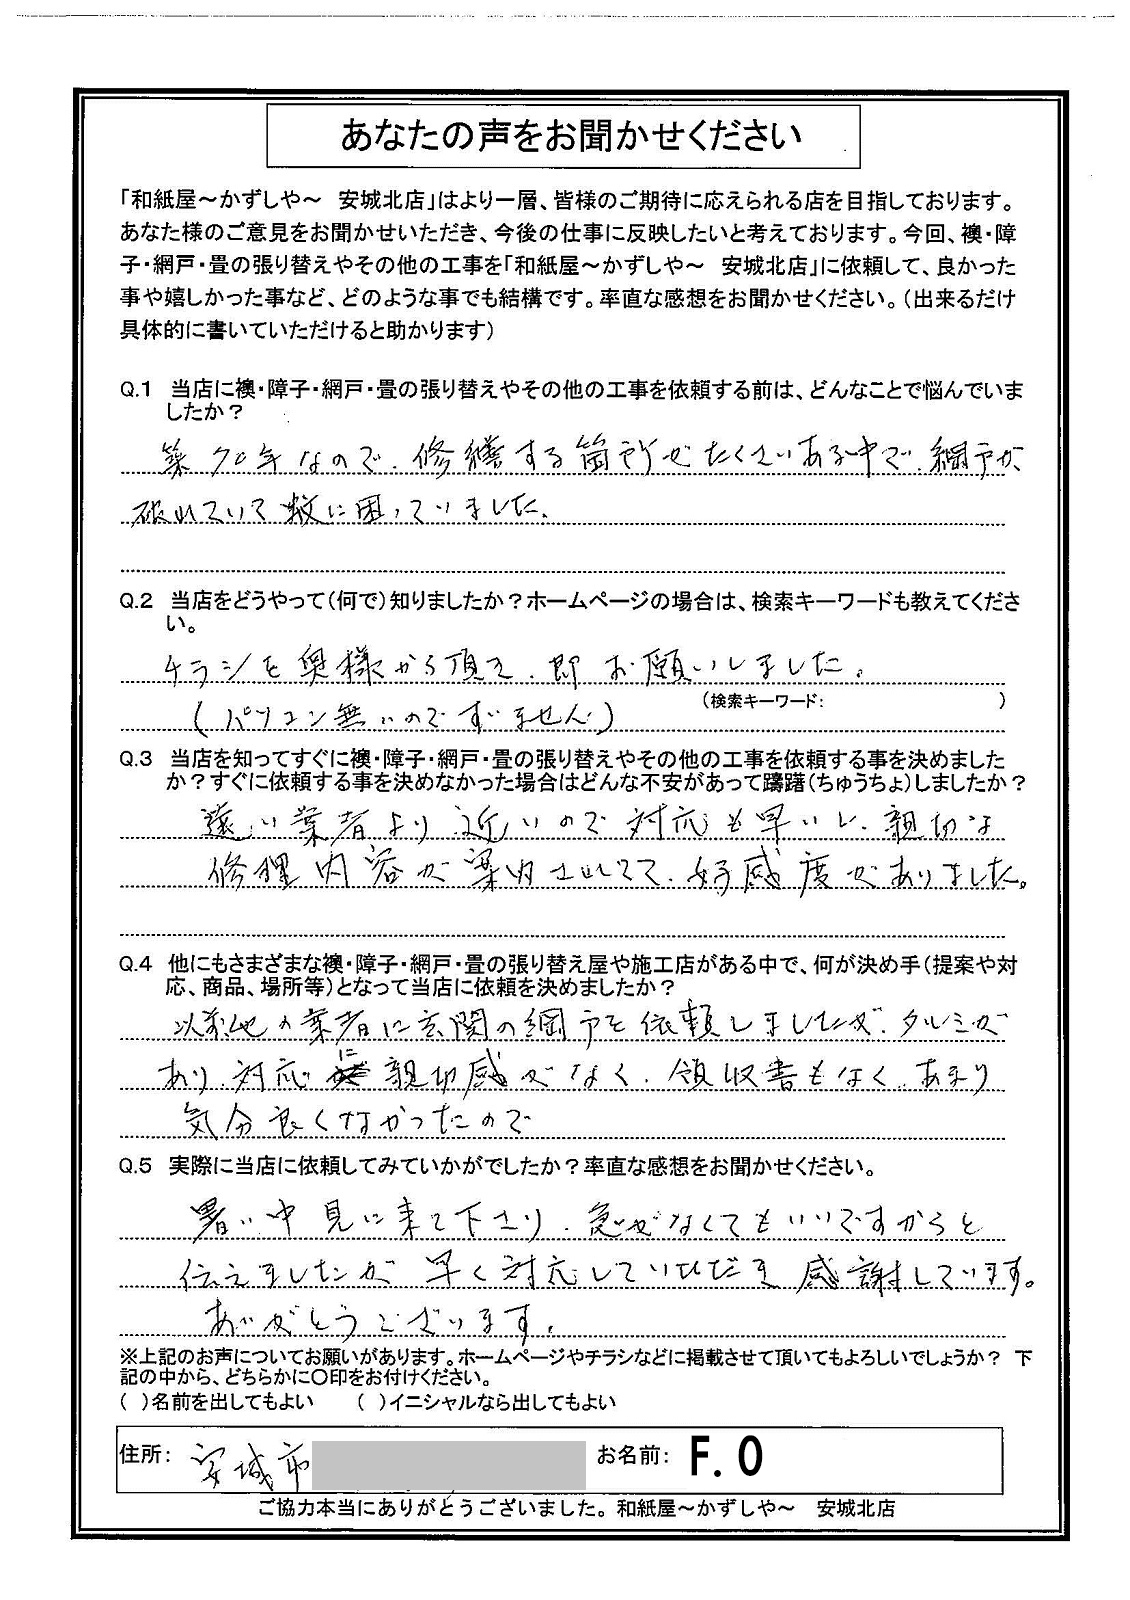 あなたの声をお聞かせください
「和紙屋～かずしや～　安城北店」はより一層、皆様のご期待に応えられる店を目指しております。
あなた様のご意見をお聞かせいただき、今後の仕事に反映したいと考えております。今回、襖・障
子・網戸・畳の張り替えやその他の工事を「和紙屋～かずしや～　安城北店」に依頼して、良かった
事や嬉しかった事など、どのような事でも結構です。率直な感想をお聞かせください。（出来るだけ
具体的に書いていただけると助かります）
Q.1　当店に襖・障子・網戸・畳の張り替えやその他の工事を依頼する前は、どんなことで悩んでいま
したか？
築70年なので、修繕する箇所がたくさんある中で、網戸が
破れていて蚊に困っていました。
Q.2　当店をどうやって（何で）知りましたか？ホームページの場合は、検索キーワードも教えてくださ
い。
チラシを奥様から頂き、即お願いしました。
（検索キーワード：　　　　　）
(パソコン無いのですいません)
Q.3　当店を知ってすぐに襖・障子・網戸・畳の張り替えやその他の工事を依頼する事を決めました
か？すぐに依頼する事を決めなかった場合はどんな不安があって躊躇（ちゅうちょ）しましたか？
遠い業者より近いので対応も早いし、親切な
修理内容が案内されてて、好感度がありました。
Q.4　他にもさまざまな襖・障子・網戸・畳の張り替え屋や施工店がある中で、何が決め手（提案や対
応、商品、場所等）となって当店に依頼を決めましたか？
以前他の業者に玄関の網戸を依頼しましたが、タルミが
あり、対応に親切感がなく、領収書もなく、あまり
気分良くなかったので
Q.5　実際に当店に依頼してみていかがでしたか？率直な感想をお聞かせください。
暑い中見に来て下さり、急がなくてもいいですからと
伝えましたが早く対応していただき感謝しています。
ありがとうございます。
※上記のお声についてお願いがあります。ホームページやチラシなどに掲載させて頂いてもよろしいでしょうか？　下
記の中から、どちらかに〇印をお付けください。
（　）名前を出してもよい　　（　）イニシャルなら出してもよい
住所：安城市　お名前：F.O
ご協力本当にありがとうございました。和紙屋～かずしや～　安城北店